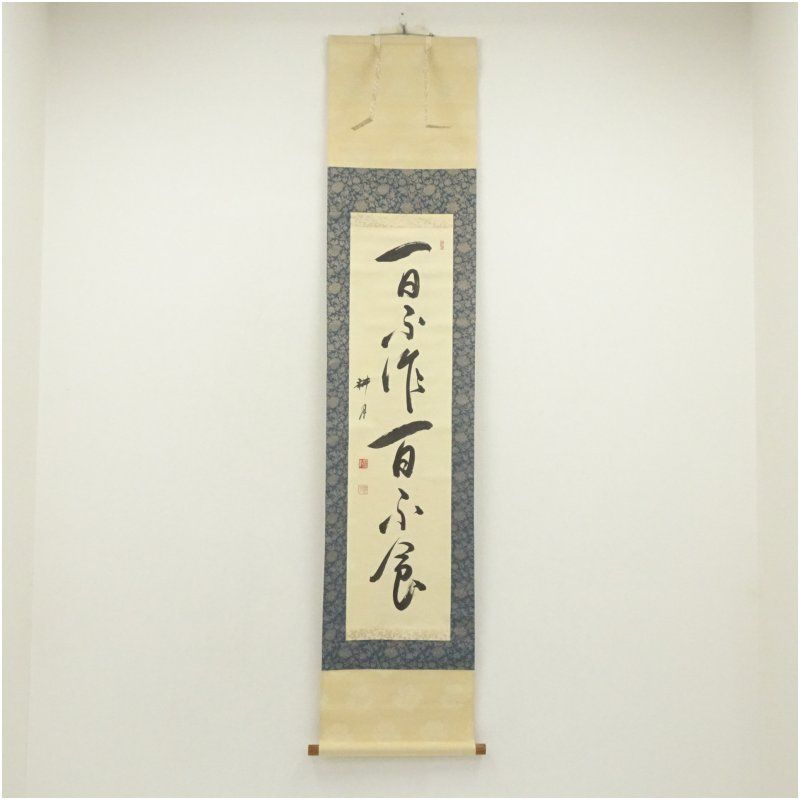 一日不作一日不食
耕月